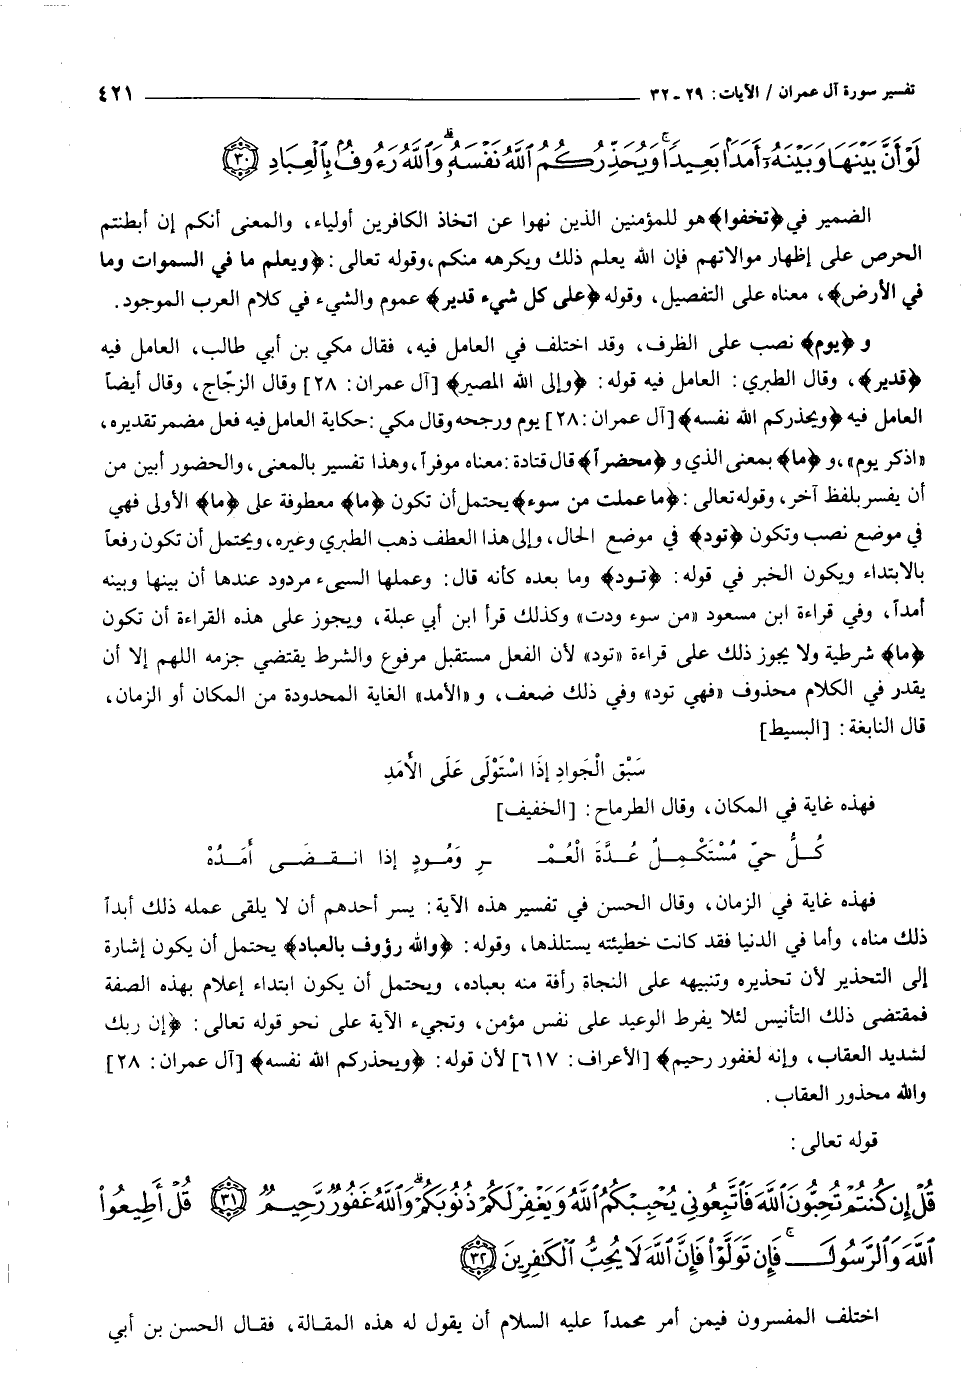 تفسير سورة آل عمران / الآيات: ٢٩ ـ ٣٢ ٤٢١
لَوْ أَنَّ بَيْنَهَا وَبَيْنَهُۥٓ أَمَدًۢا بَعِيدًا ۗ وَيُحَذِّرُكُمُ ٱللَّهُ نَفْسَهُۥ ۗ وَٱللَّهُ رَءُوفٌۢ بِٱلْعِبَادِ ﴿٣٠﴾
الضمير في ﴿تخفوا﴾ هو للمؤمنين الذين نهوا عن اتخاذ الكافرين أولياء، والمعنى أنكم إن أبطنتم
الحرص على إظهار موالاتهم فإن الله يعلم ذلك ويكرهه منكم، وقوله تعالى: ﴿ويعلم ما في السموات وما
في الأرض﴾، معناه على التفصيل، وقوله ﴿على كل شيء قدير﴾ عموم والشيء في كلام العرب الموجود.
و ﴿يوم﴾ نصب على الظرف، وقد اختلف في العامل فيه، فقال مكي بن أبي طالب، العامل فيه
﴿قدير﴾، وقال الطبري: العامل فيه قوله: ﴿وإلى الله المصير﴾ [آل عمران: ٢٨] وقال الزجّاج، وقال أيضاً
العامل فيه ﴿ويحذركم الله نفسه﴾ [آل عمران: ٢٨] يوم ورجحه وقال مكي: حكاية العامل فيه فعل مضمر تقديره،
«اذكر يوم»، و ﴿ما﴾ بمعنى الذي و ﴿محضراً﴾ قال قتادة: معناه موفراً، وهذا تفسير بالمعنى، والحضور أبين من
أن يفسر بلفظ آخر، وقوله تعالى: ﴿ما عملت من سوء﴾ يحتمل أن تكون ﴿ما﴾ معطوفة على ﴿ما﴾ الأولى فهي
في موضع نصب وتكون ﴿تود﴾ في موضع الحال، وإلى هذا العطف ذهب الطبري وغيره، ويحتمل أن تكون رفعاً
بالابتداء ويكون الخبر في قوله: ﴿تود﴾ وما بعده كأنه قال: وعملها السيىء مردود عندها أن بينها وبينه
أمداً، وفي قراءة ابن مسعود «من سوء ودت» وكذلك قرأ ابن أبي عبلة، ويجوز على هذه القراءة أن تكون
﴿ما﴾ شرطية ولا يجوز ذلك على قراءة «تود» لأن الفعل مستقبل مرفوع والشرط يقتضي جزمه اللهم إلا أن
يقدر في الكلام محذوف «فهي تود» وفي ذلك ضعف، و «الأمد» الغاية المحدودة من المكان أو الزمان،
قال النابغة: [البسيط]
سَبْق الْجَوادِ إِذَا اسْتَوْلَى عَلَى الأَمَدِ
فهذه غاية في المكان، وقال الطرماح: [الخفيف]
كُلُّ حيّ مُسْتَكْمِلٌ عُدَّةَ الْعُمْـ ـرِ وَمُودٍ إذا انـقـضَـى أَمَـدُهْ
فهذه غاية في الزمان، وقال الحسن في تفسير هذه الآية: يسر أحدهم أن لا يلقى عمله ذلك أبداً
ذلك مناه، وأما في الدنيا فقد كانت خطيئته يستلذها، وقوله: ﴿والله رؤوف بالعباد﴾ يحتمل أن يكون إشارة
إلى التحذير لأن تحذيره وتنبيهه على النجاة رأفة منه بعباده، ويحتمل أن يكون ابتداء إعلام بهذه الصفة
فمقتضى ذلك التأنيس لئلا يفرط الوعيد على نفس مؤمن، وتجيء الآية على نحو قوله تعالى: ﴿إن ربك
لشديد العقاب، وإنه لغفور رحيم﴾ [الأعراف: ٦١٧] لأن قوله: ﴿ويحذركم الله نفسه﴾ [آل عمران: ٢٨]
والله محذور العقاب.
قوله تعالى:
قُلْ إِن كُنتُمْ تُحِبُّونَ ٱللَّهَ فَٱتَّبِعُونِى يُحْبِبْكُمُ ٱللَّهُ وَيَغْفِرْ لَكُمْ ذُنُوبَكُمْ ۗ وَٱللَّهُ غَفُورٌ رَّحِيمٌ ﴿٣١﴾ قُلْ أَطِيعُوا۟
ٱللَّهَ وَٱلرَّسُولَ ۖ فَإِن تَوَلَّوْا۟ فَإِنَّ ٱللَّهَ لَا يُحِبُّ ٱلْكَٰفِرِينَ ﴿٣٢﴾
اختلف المفسرون فيمن أمر محمداً عليه السلام أن يقول له هذه المقالة، فقال الحسن بن أبي